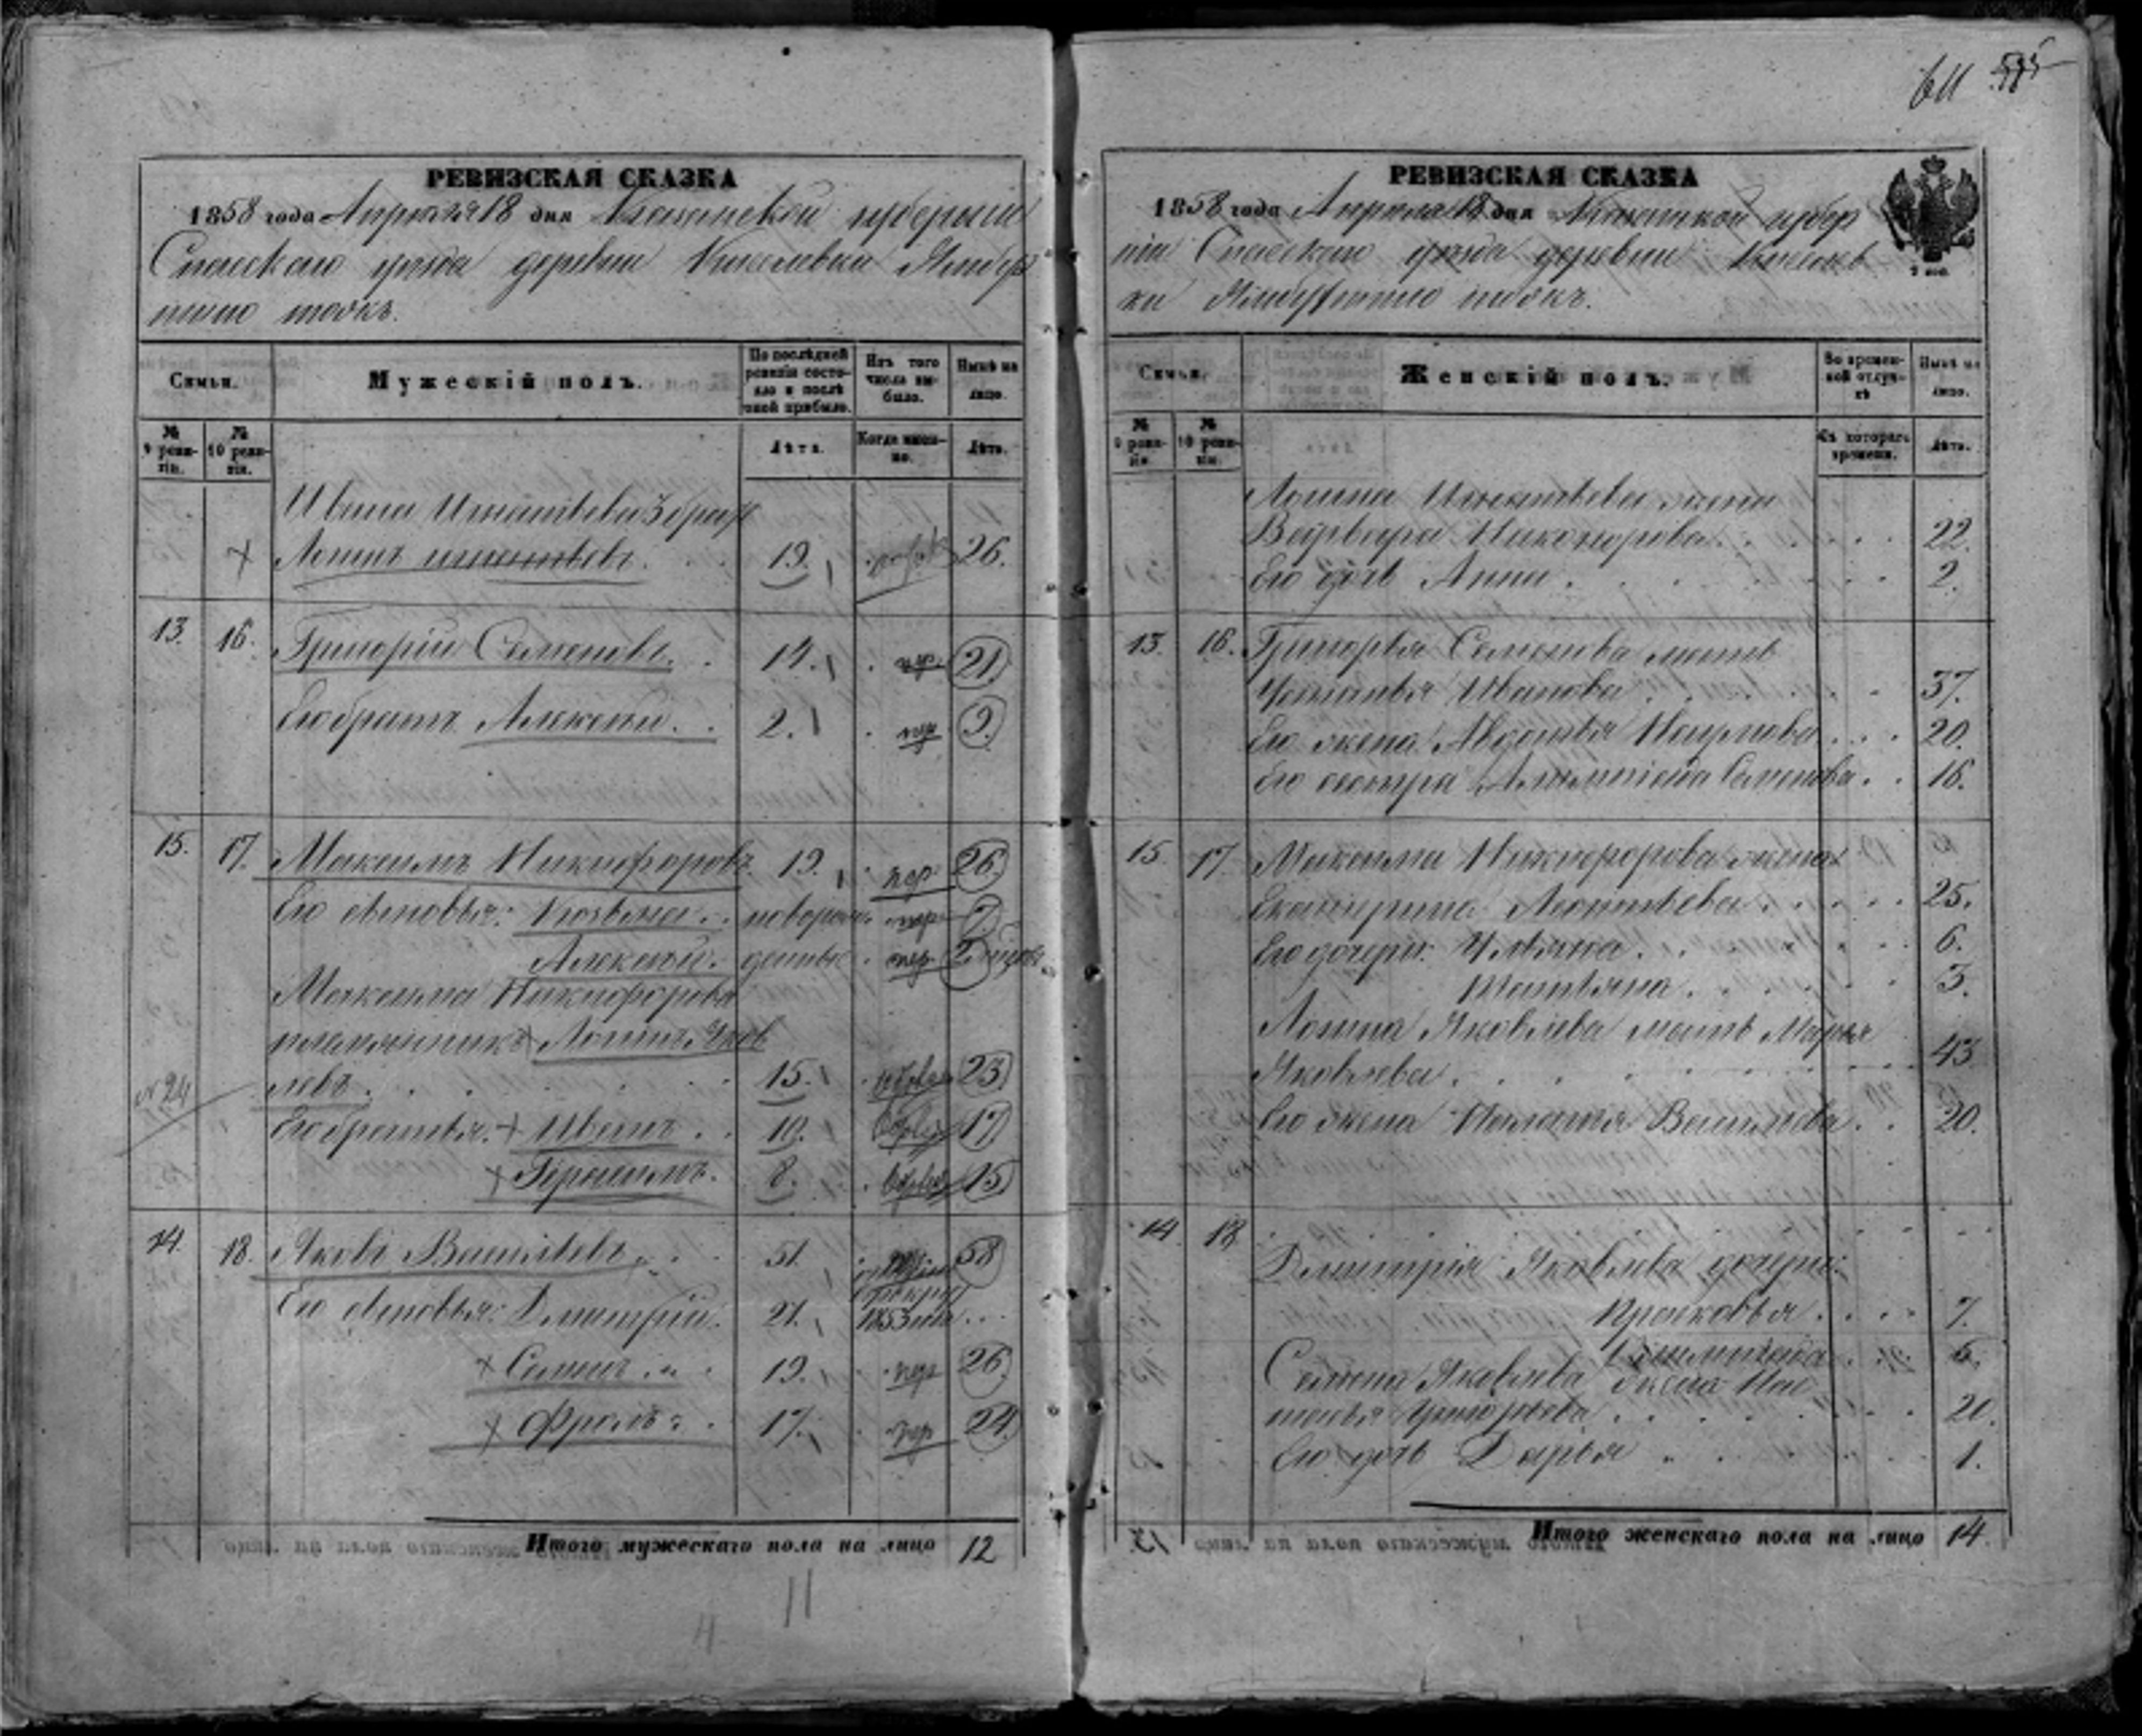 611 595
РЕВИЗСКАЯ СКАЗКА
1858 года Апреля 18 дня Казанской губернии
Спасскаго уезда деревни Киселевки
тожъ.
Семьи.
Мужескій полъ.
По послѣдней ревизіи состояло и послѣ оной прибыло.
Изъ того числа выбыло.
Нынѣ на лицо.
№ 9 ревизіи.
№ 10 ревизіи.
Лѣта.
Когда именно.
Лѣта.
Ивана Игнатьева 3 братъ
Логинъ Игнатьевъ. 19. 26.
13. 16. Григорій Семеновъ. 14. 21
Его братъ Алексей. 2. 9.
15. 17. Максимъ Никифоровъ 19. пер 26.
Его сыновья: Козьма. новорож пер 7
Алексей. денные пер 2
Максима Никифорова
племянникъ Логинъ Яков
левъ. 15. 23
№ 24
Его братья: Иванъ. 10. 17
Герасимъ. 8. 15
14. 18. Яковъ Васильевъ. 51. 58
Его сыновья: Дмитрій. 21. 1853 года
Семенъ 19. пер 26.
Фролъ 17. пер 24
Итого мужескаго пола на лицо 12
11
РЕВИЗСКАЯ СКАЗКА
1858 года Апреля 18 дня Казанской губер
ніи Спасскаго уезда деревни Киселев
ки тожъ.
Семьи.
Женскій полъ.
Во временной отлучкѣ
Нынѣ на лицо.
№ 9 ревизіи.
№ 10 ревизіи.
Съ котораго времени.
Лѣта.
Логина Игнатьева жена
Варвара Никонорова. 22.
Его дочь Анна. 2.
13. 16. Григорья Семенова мать
Устинья Иванова 37.
Его жена Авдотья Наумова 20.
Его сестра Семенова. 16.
15. 17. Максима Никифорова жена
Екатерина Леонтьева. 25.
Его дочери: Ульяна. 6.
Татьяна. 3.
Логина Яковлева мать Марья
Яковлева. 43
Его жена Васильева. 20.
14. 18.
Дмитрія Яковлева дочери:
Прасковья 7.
6.
Семена Яковлева жена Нас
тасья Григорьева 20.
Его дочь Дарья 1.
Итого женскаго пола на лицо 14